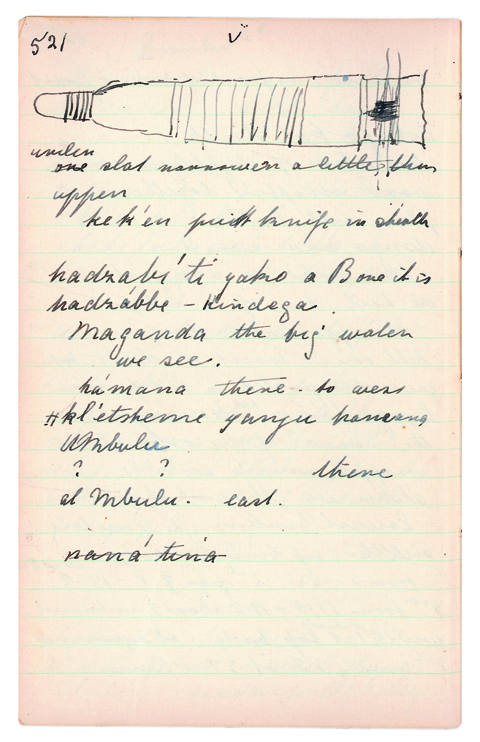 521
under
one slat narrower a little than
upper
kek'en putt knife in sheath
hadzabí tí yako a Bone it is
hadzábbe – Kindega.
Maganda the big water
we see.
hámana there. to west
#kl'étsheme yangu
Umbulu
? ? there
at Mbulu. east.
naná tina